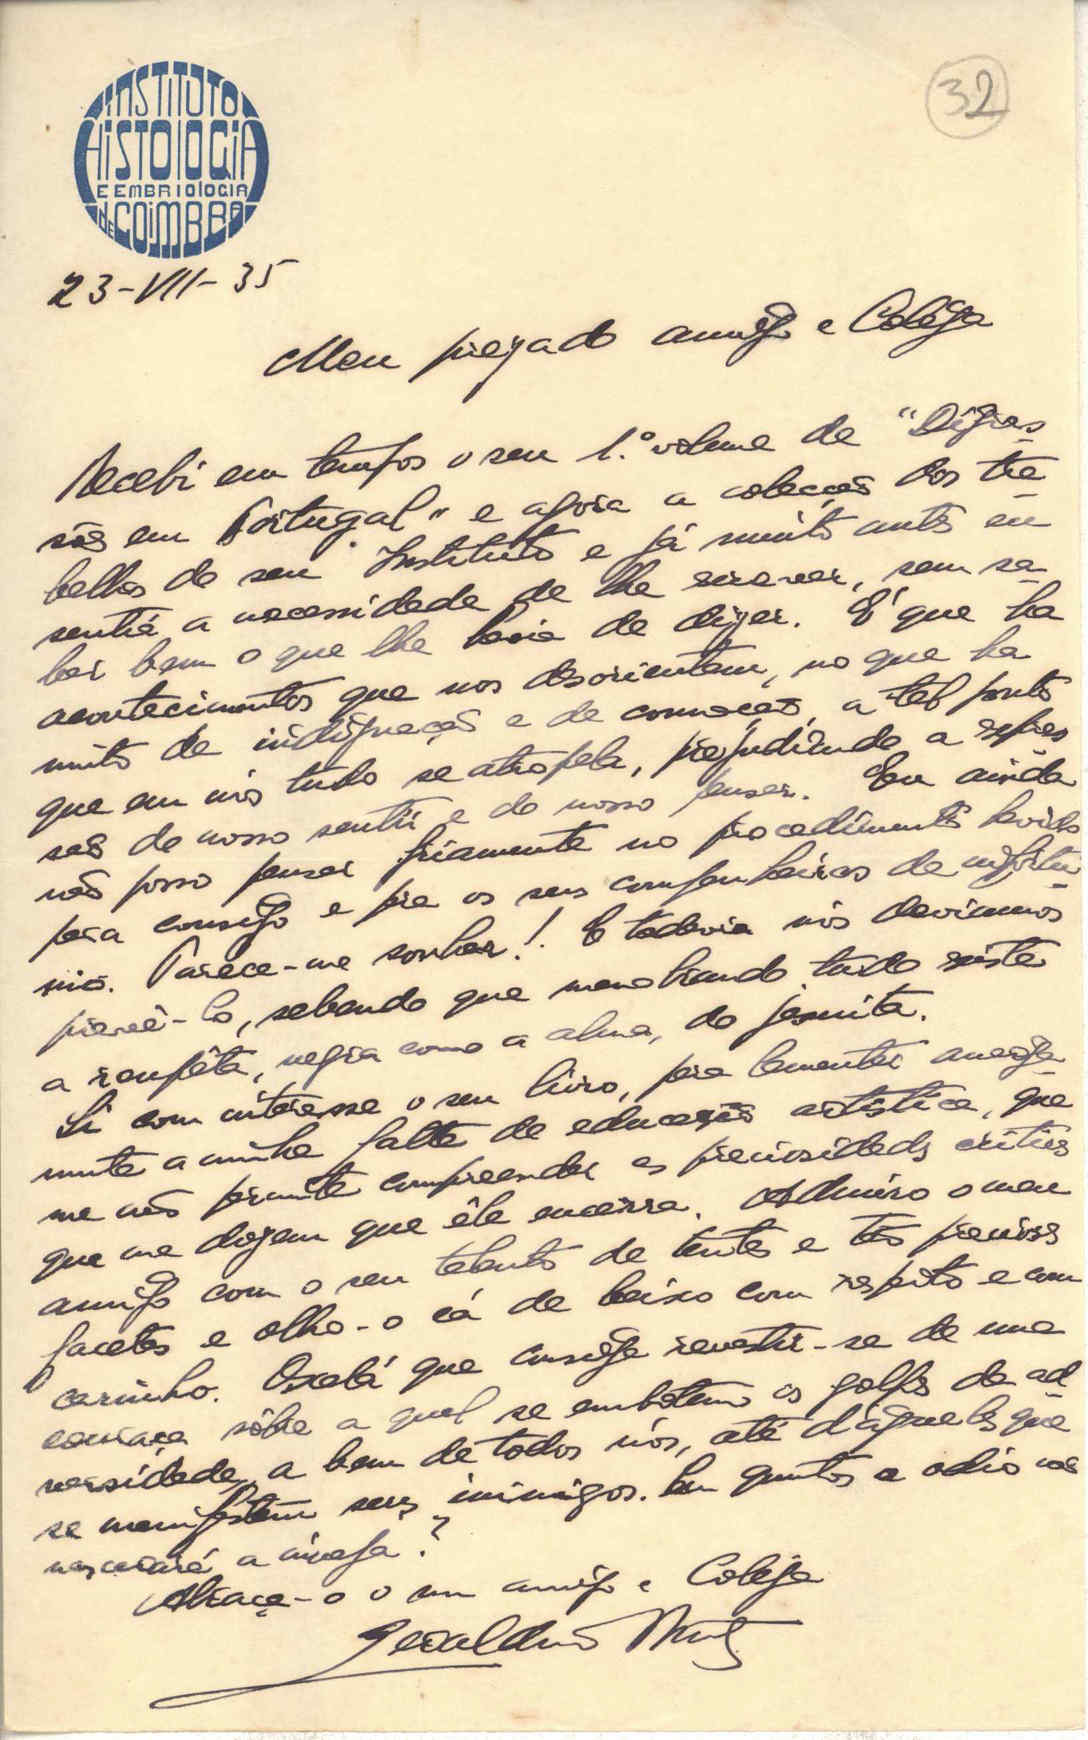 INSTITUTO
HISTOLOGIA
E EMBRIOLOGIA
DE COIMBRA
32
23-VII-35
Meu prezado amigo e Colega
Recebi em tempos o seu 1.º volume de "Digres-
sões em Portugal" e agora a colecção dos tra-
balhos do seu Instituto e já muito antes eu
sentia a necessidade de lhe escrever, sem sa-
ber bem o que lhe havia de dizer. É que ha
acontecimentos que nos desorientam, no que ha
muito de indignação e de comoção, a tal ponto
que em nós tudo se atropela, prejudicando a expres-
são do nosso sentir e do nosso pensar. Eu ainda
não posso pensar friamente no procedimento havido
para consigo e pra os seus companheiros de infortu-
nio. Parece-me sonhar! E todavia nós deviamos
prevê-lo, sabendo que manobrando tudo existe
a roupêta, negra como a alma, do jesuita.
Li com interesse o seu livro, pra lamentar
mente a minha falta de educação artística, que
me não permite compreender as preciosidades
que me dizem que êle encerra. Admiro o meu
amigo com o seu talento de tantas e tão preciosas
facetas e olho-o cá de baixo com respeito e com
carinho. Oxalá que consiga revestir-se de uma
couraça sôbre a qual se embotem os golpes da ad-
versidade, a bem de todos nós, até d'aqueles que
se manifestam seus inimigos. Em quantos o odio não
mascarará a inveja?
Abraça-o o seu amigo e Colega
Geraldino